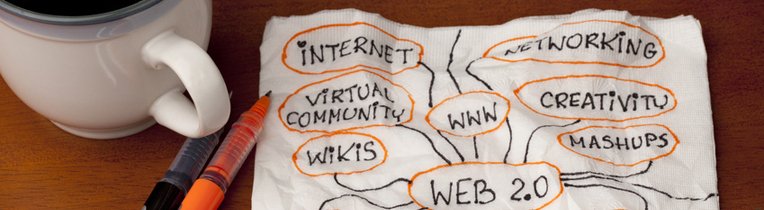 iNTERNET
NETWORKING
ViRTUAL
COMMUNITY
WWW
CREATiViTY
WiKiS
MASHUPS
WEB 2.0